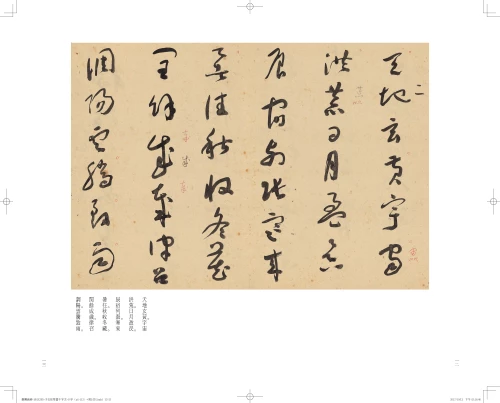 天地玄黃宇宙
洪荒日月盈昃
辰宿列張寒來
暑往秋收冬藏
閏餘成歲律呂
調陽雲騰致雨
天地玄黃，宇宙
洪荒。日月盈昃，
辰宿列張。寒來
暑往，秋收冬藏。
閏餘成歲，律呂
調陽。雲騰致雨，